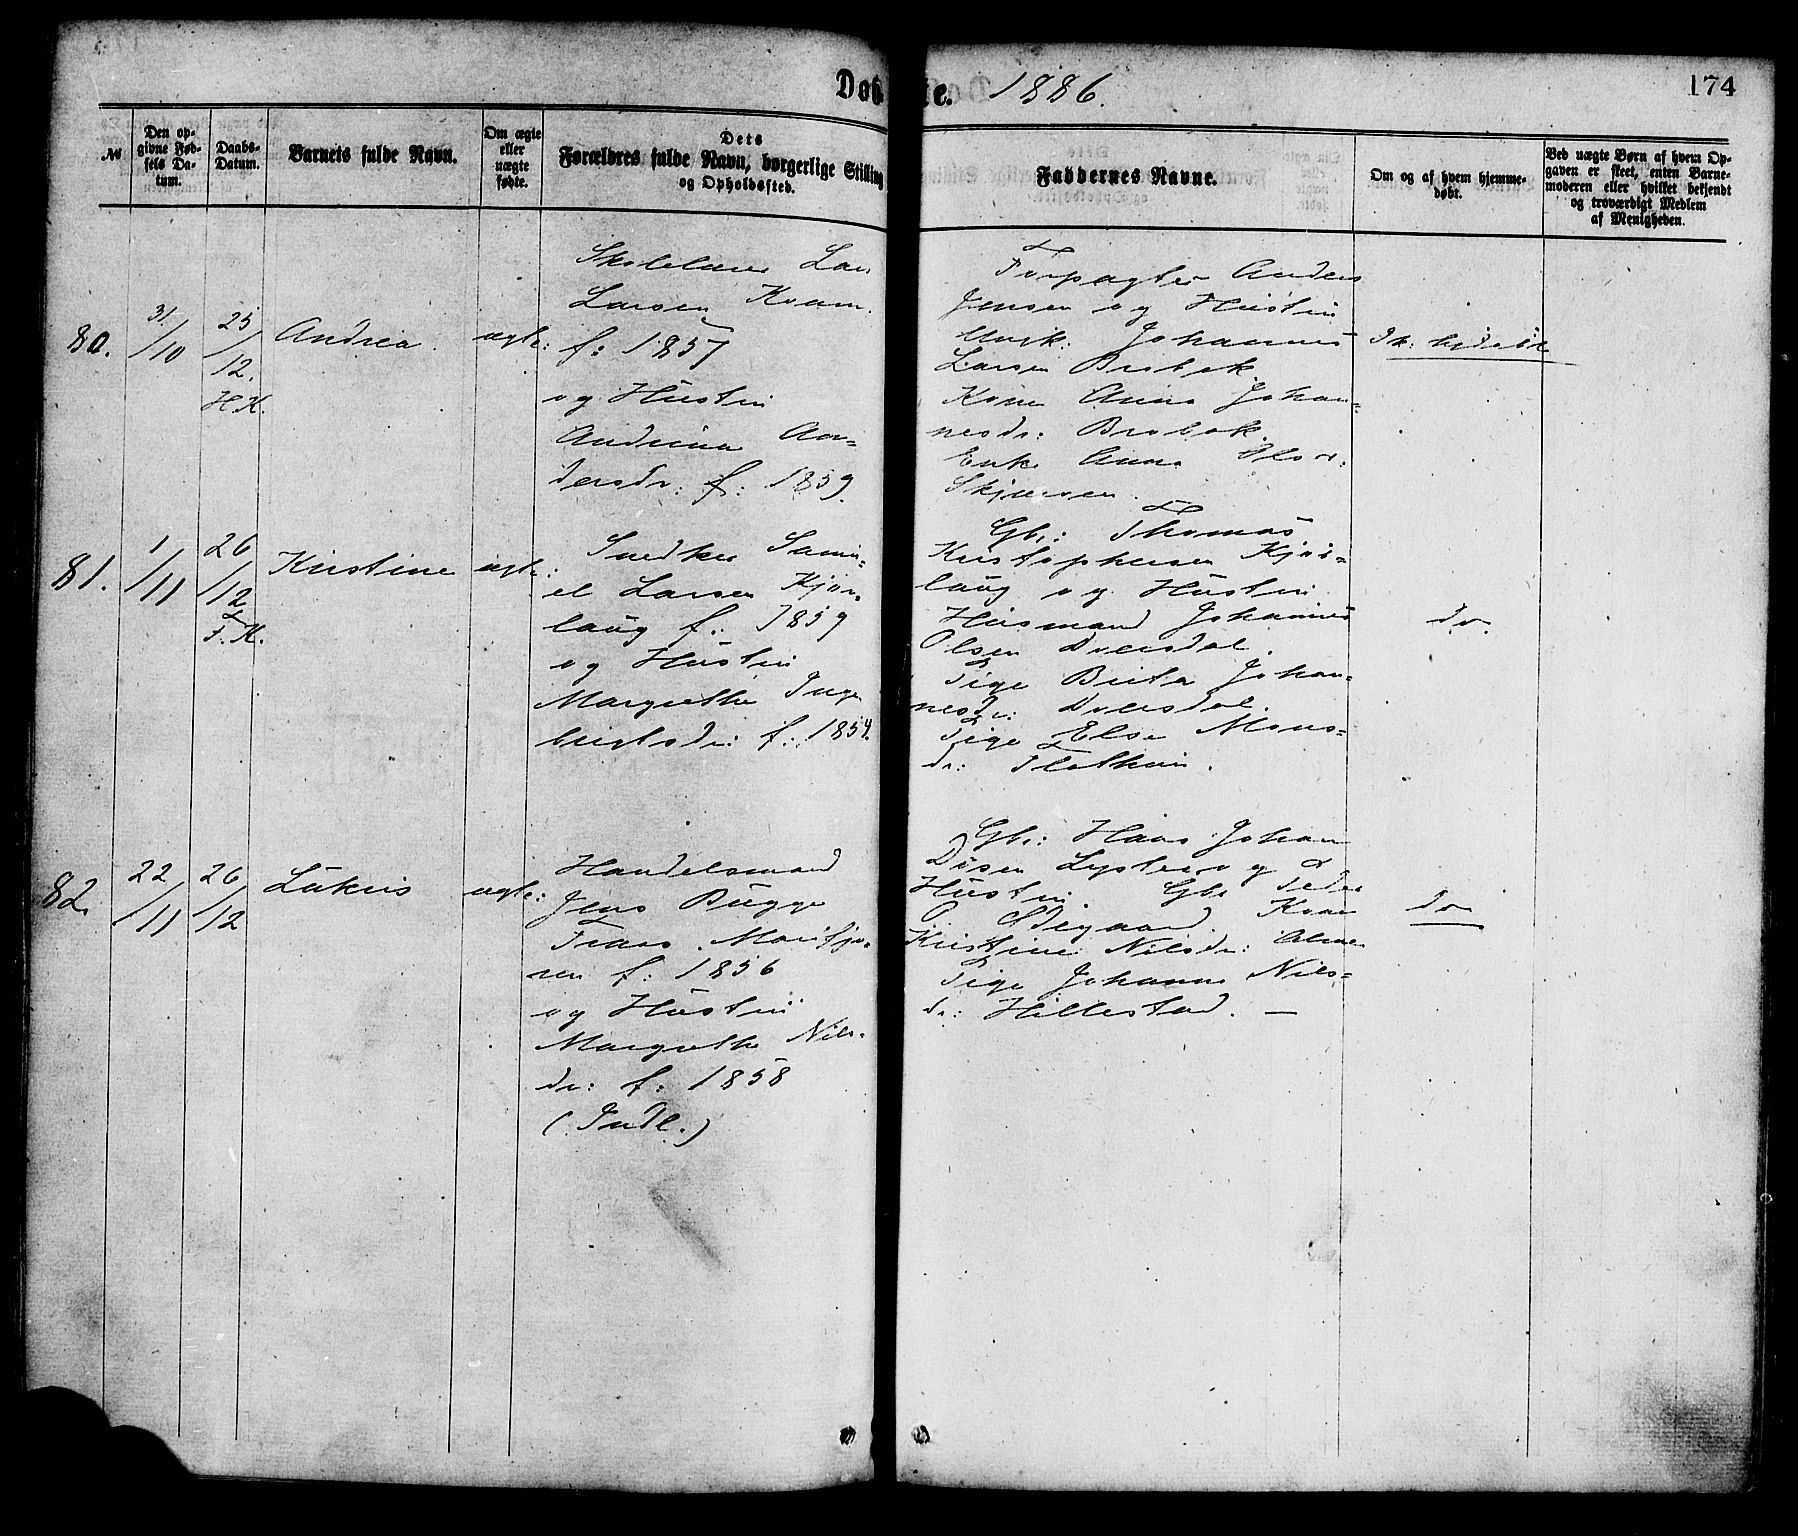 Døbte. 1886.
174
№
Den op-
givne Fød-
sels Da-
tum.
Daabs-
Datum.
Barnets fulde Navn.
Om ægte
eller
uægte
fødte.
Dets
Forældres fulde Navn, borgerlige Stilling
og Opholdssted.
Faddernes Navne.
Om og af hvem hjemme-
døbt.
Ved uægte Børn af hvem Op-
gaven er skeet, enten Barne-
moderen eller hvilket bekjendt
og troværdigt Medlem
af Menigheden.
80.
31/10
25/12.
H.K.
Andrea.
ægte:
Skolelærer Lars
Larsen Kvam.
f: 1857
og Hustru
Andrina An-
dersdr: f: 1859.
Forpagter Anders
Jensen og Hustru
Ungk: Johannes
Larsen Brobak
Kone Anna Johan-
nesdr: Brobak.
Enke Anna
Skjærsen.
Ik: hjdøbt
81.
1/11
26/12
F.K.
Kirstine
ægte:
Snedker Samu-
el Larsen Kjør-
laug f: 1859
og Hustru
Margrethe Inge
brigtsdr: f: 1854.
Gbr: Thomas
Kristophersen Kjør-
laug og Hustru
Husmand Johannes
Olsen Dvergdal.
Pige Brita Johan-
nesdr: Dvergdal.
Pige Else Mons-
dr: Flothein.
do.
82.
22/11
26/12
Lukris
ægte:
Handelsmand
Jens Bugge
Frans. Mortsj-
sen f: 1856
og Hustru
Margrethe Nils-
dr: f: 1858
(Indl.)
Gbr: Hans Johan
Døsen Lyster og
Hustru. Gbr Peder
P Ødegaard. Kone
Kristine Nilsdr:
Pige Johanne Nils-
dr: Hillestad. —
do